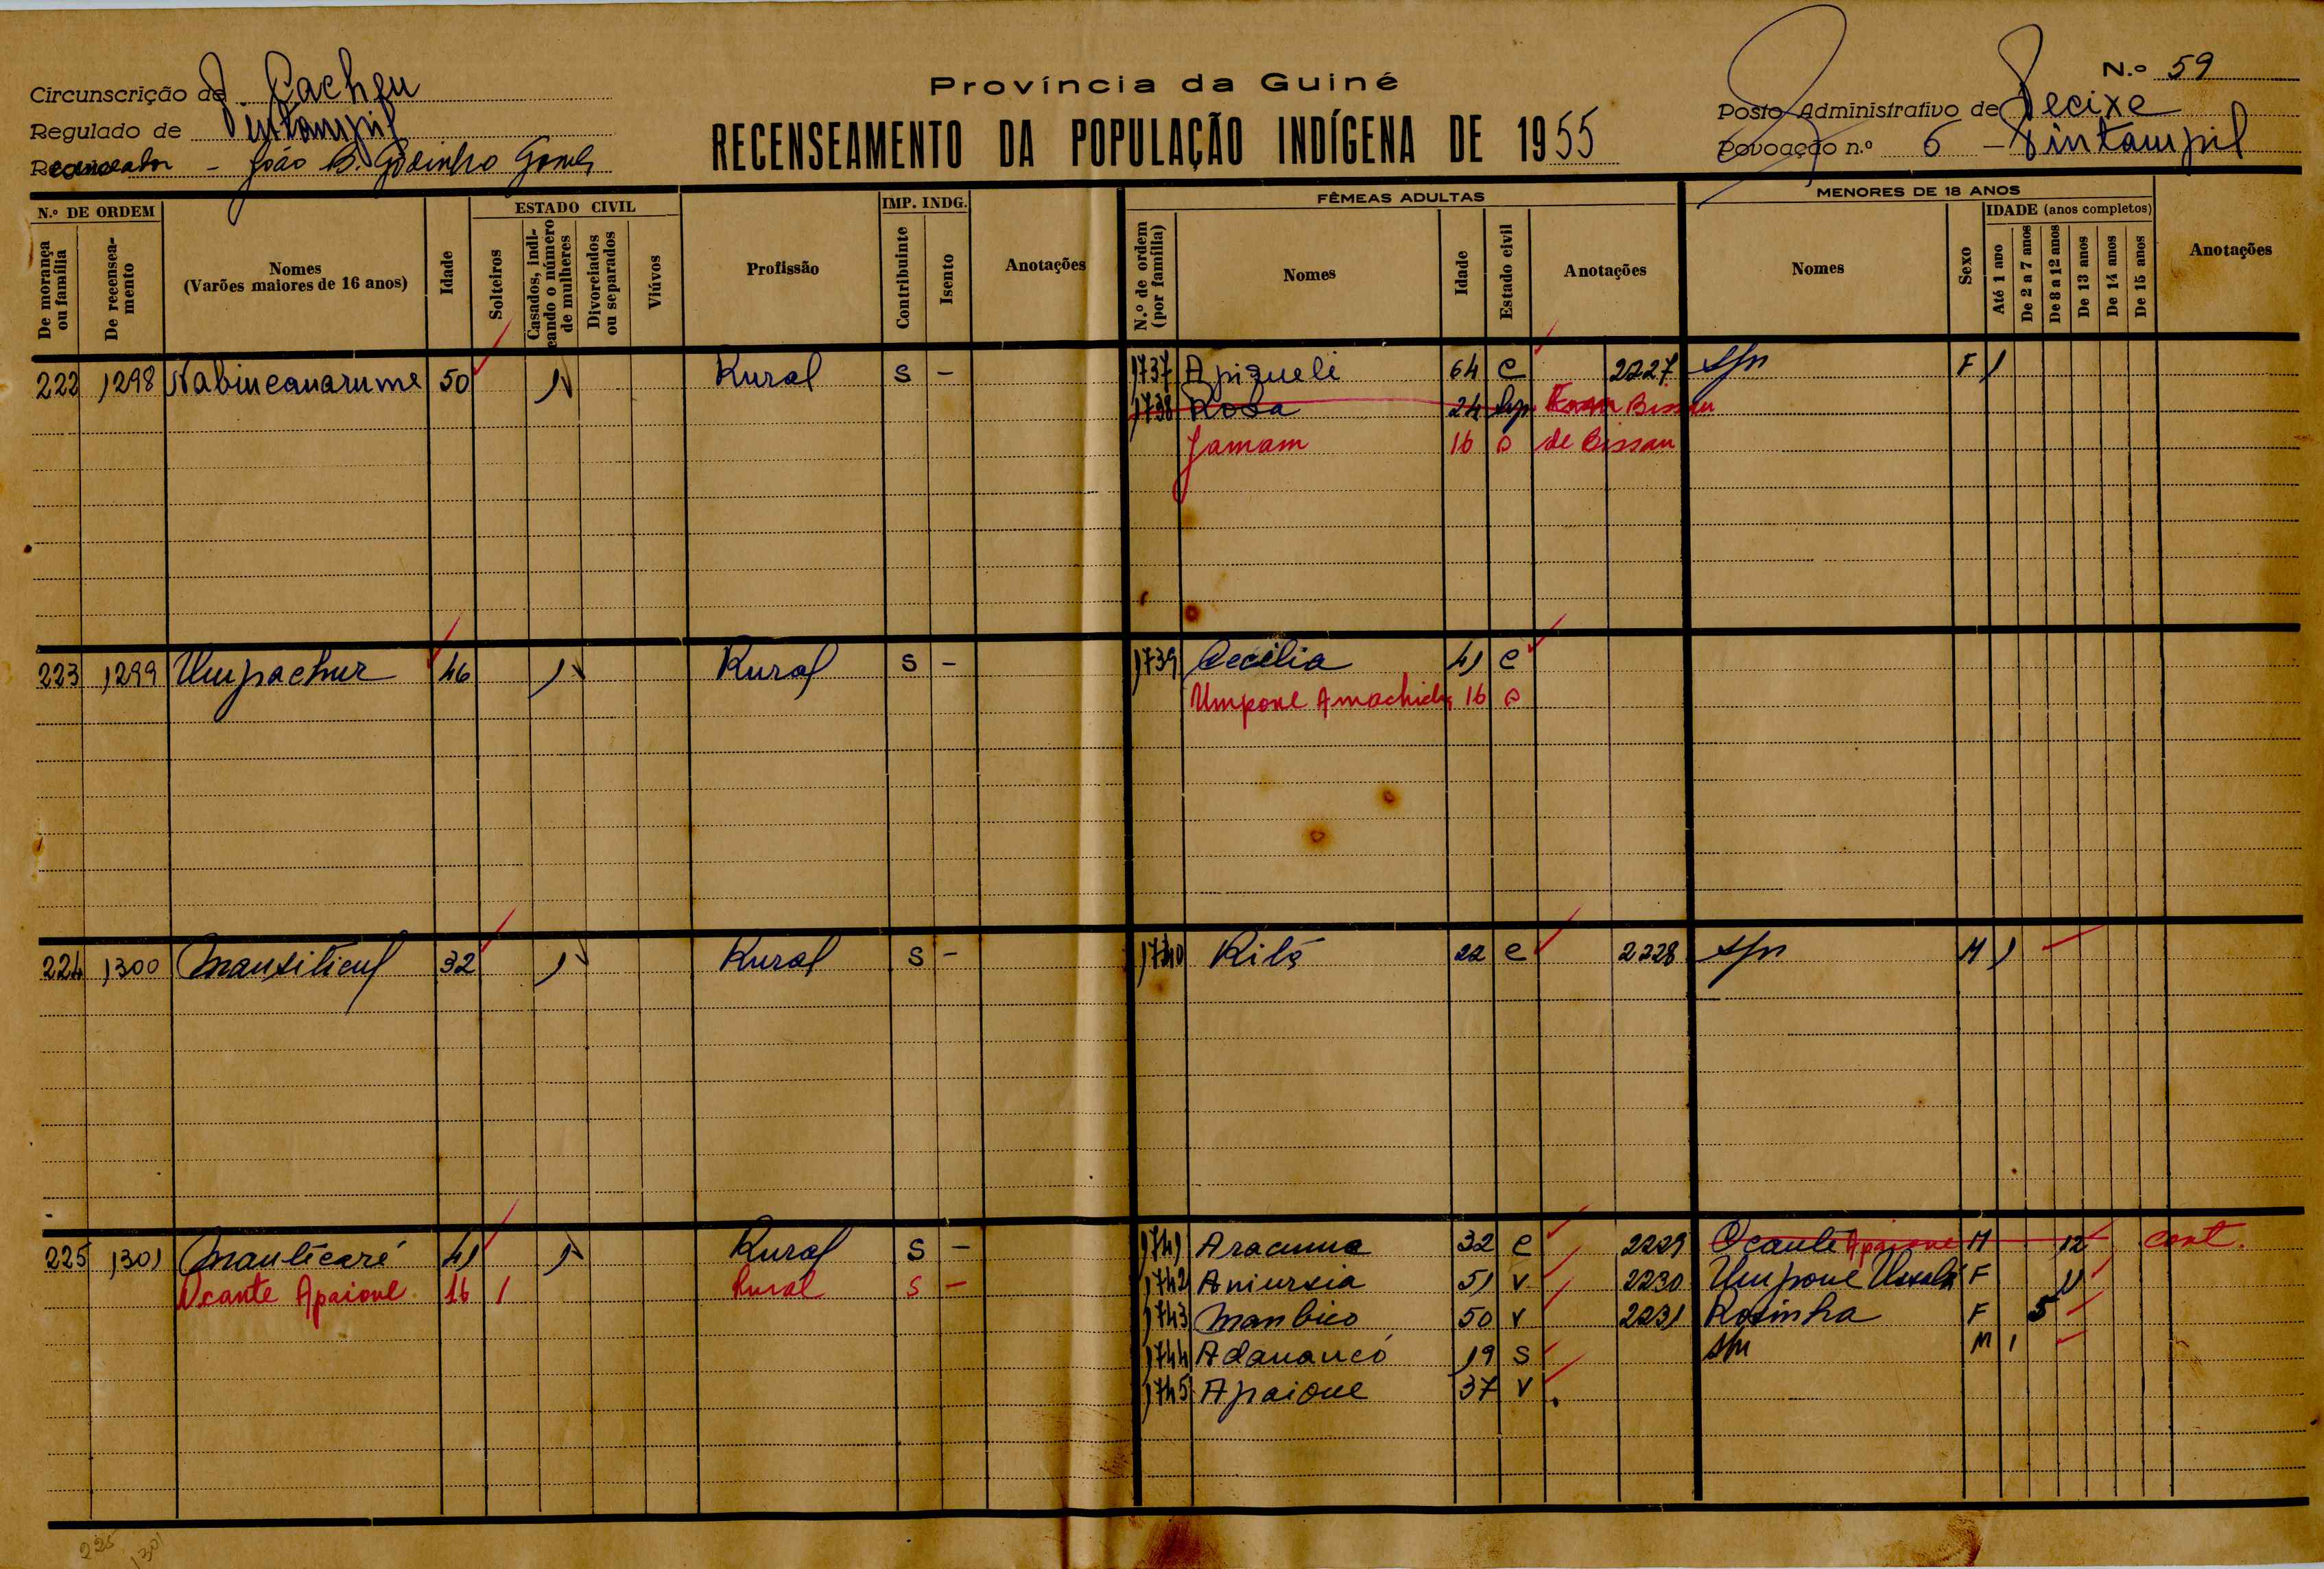 Província da Guiné
N.º 59
Circunscrição de Cacheu
Posto Administrativo de Pecixe
Regulado de Pintampil
RECENSEAMENTO DA POPULAÇÃO INDÍGENA DE 1955
Povoação n.º 6 - Pintampil
Recenseador - João B. Godinho Gomes
N.º DE ORDEM
De morança ou família
De recenseamento
Nomes
(Varões maiores de 16 anos)
Idade
ESTADO CIVIL
Solteiros
Casados, indicando o número de mulheres
Divorciados ou separados
Viúvos
Profissão
IMP. INDG.
Contribuinte
Isento
Anotações
FÊMEAS ADULTAS
N.º de ordem (por família)
Nomes
Idade
Estado civil
Anotações
MENORES DE 18 ANOS
Nomes
Sexo
IDADE (anos completos)
Até 1 ano
De 2 a 7 anos
De 8 a 12 anos
De 13 anos
De 14 anos
De 15 anos
Anotações
222 1298 Nabincanarume 50 1 Rural S - 1737 Apigueli 64 C 2227 s/n F 1
1738 Rosa 24 Bissau
Jamam 16 s de Bissau
223 1299 Umpachur 46 1 Rural S - 1739 Cecília 41 C
Umpone 16 s
224 1300 32 1 Rural S - 1740 Ritó 22 C 2228 s/n M 1
225 1301 Manticaré 41 1 Rural S - 1741 Aracuma 32 C 2229 Ocante Apaione M 12 cont.
Ocante Apaione 16 1 Rural S - 1742 Aniursia 51 V 2230 Umpone F 11
1743 Manbico 50 V 2231 Rosinha F 5
1744 Adanancó 19 S s/n M 1
1745 Apaione 37 V
225 1301